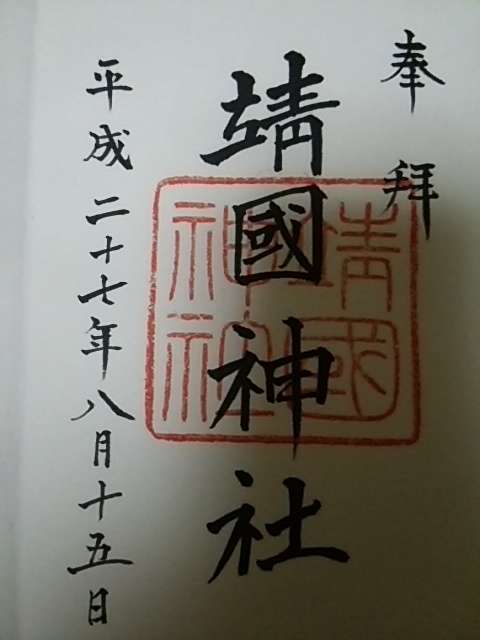 奉拝
靖國神社
靖國
神社
平成二十七年八月十五日